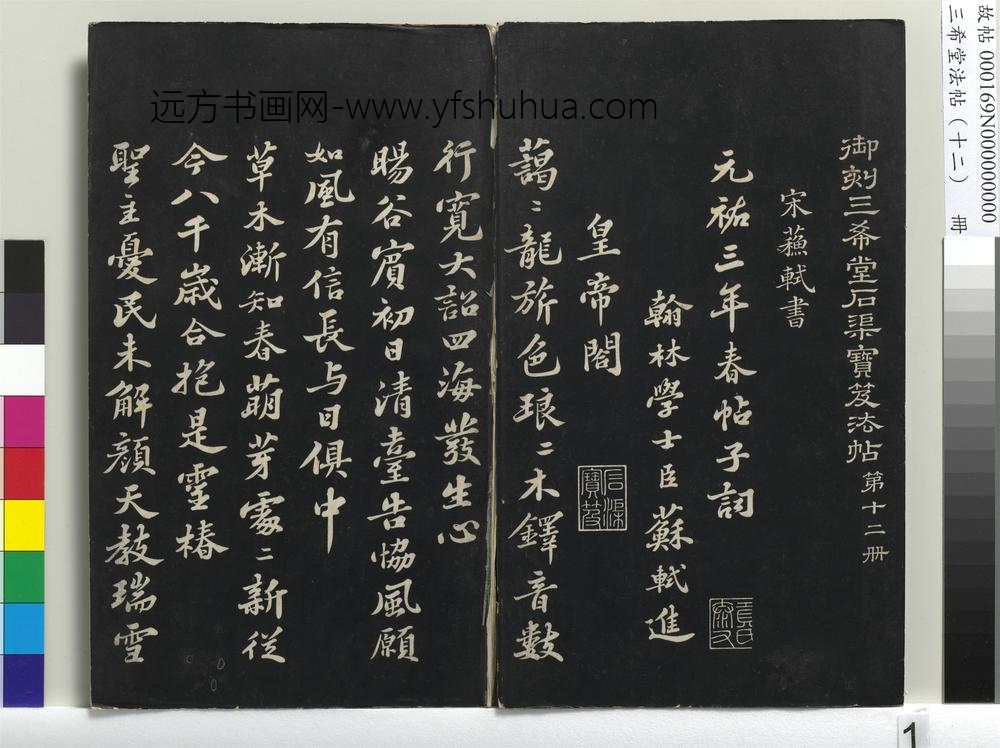 远方书画网-www.yfshuhua.com
故帖 000169N000000000
三希堂法帖（十二） 册
御刻三希堂石渠寶笈法帖 第十二册
宋蘓軾書
元祐三年春帖子詞
翰林學士臣蘇軾進
皇帝閣
石渠寶笈
藹〻龍旂色琅〻木鐸音數
行寬大詔四海發生心
暘谷賓初日清臺告協風願
如風有信長与日俱中
草木漸知春萌芽處〻新從
今八千歲合抱是靈椿
聖主憂民未解顏天教瑞雪
1